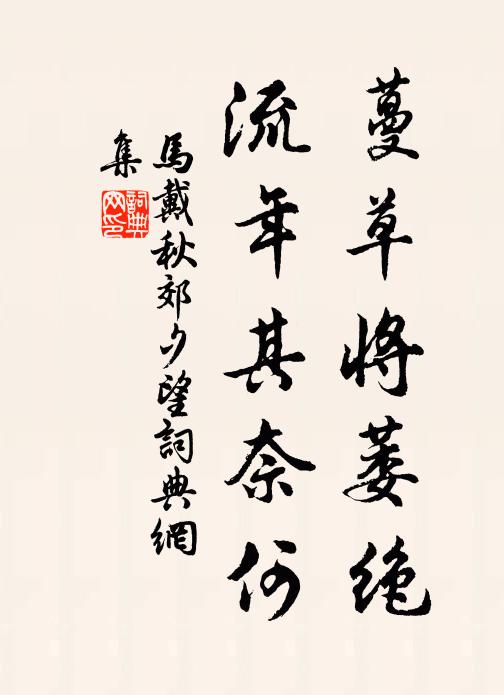 蔓草将萎绝
流年其奈何
馬戴秋郊夕望詞典網
集
詞典
网印